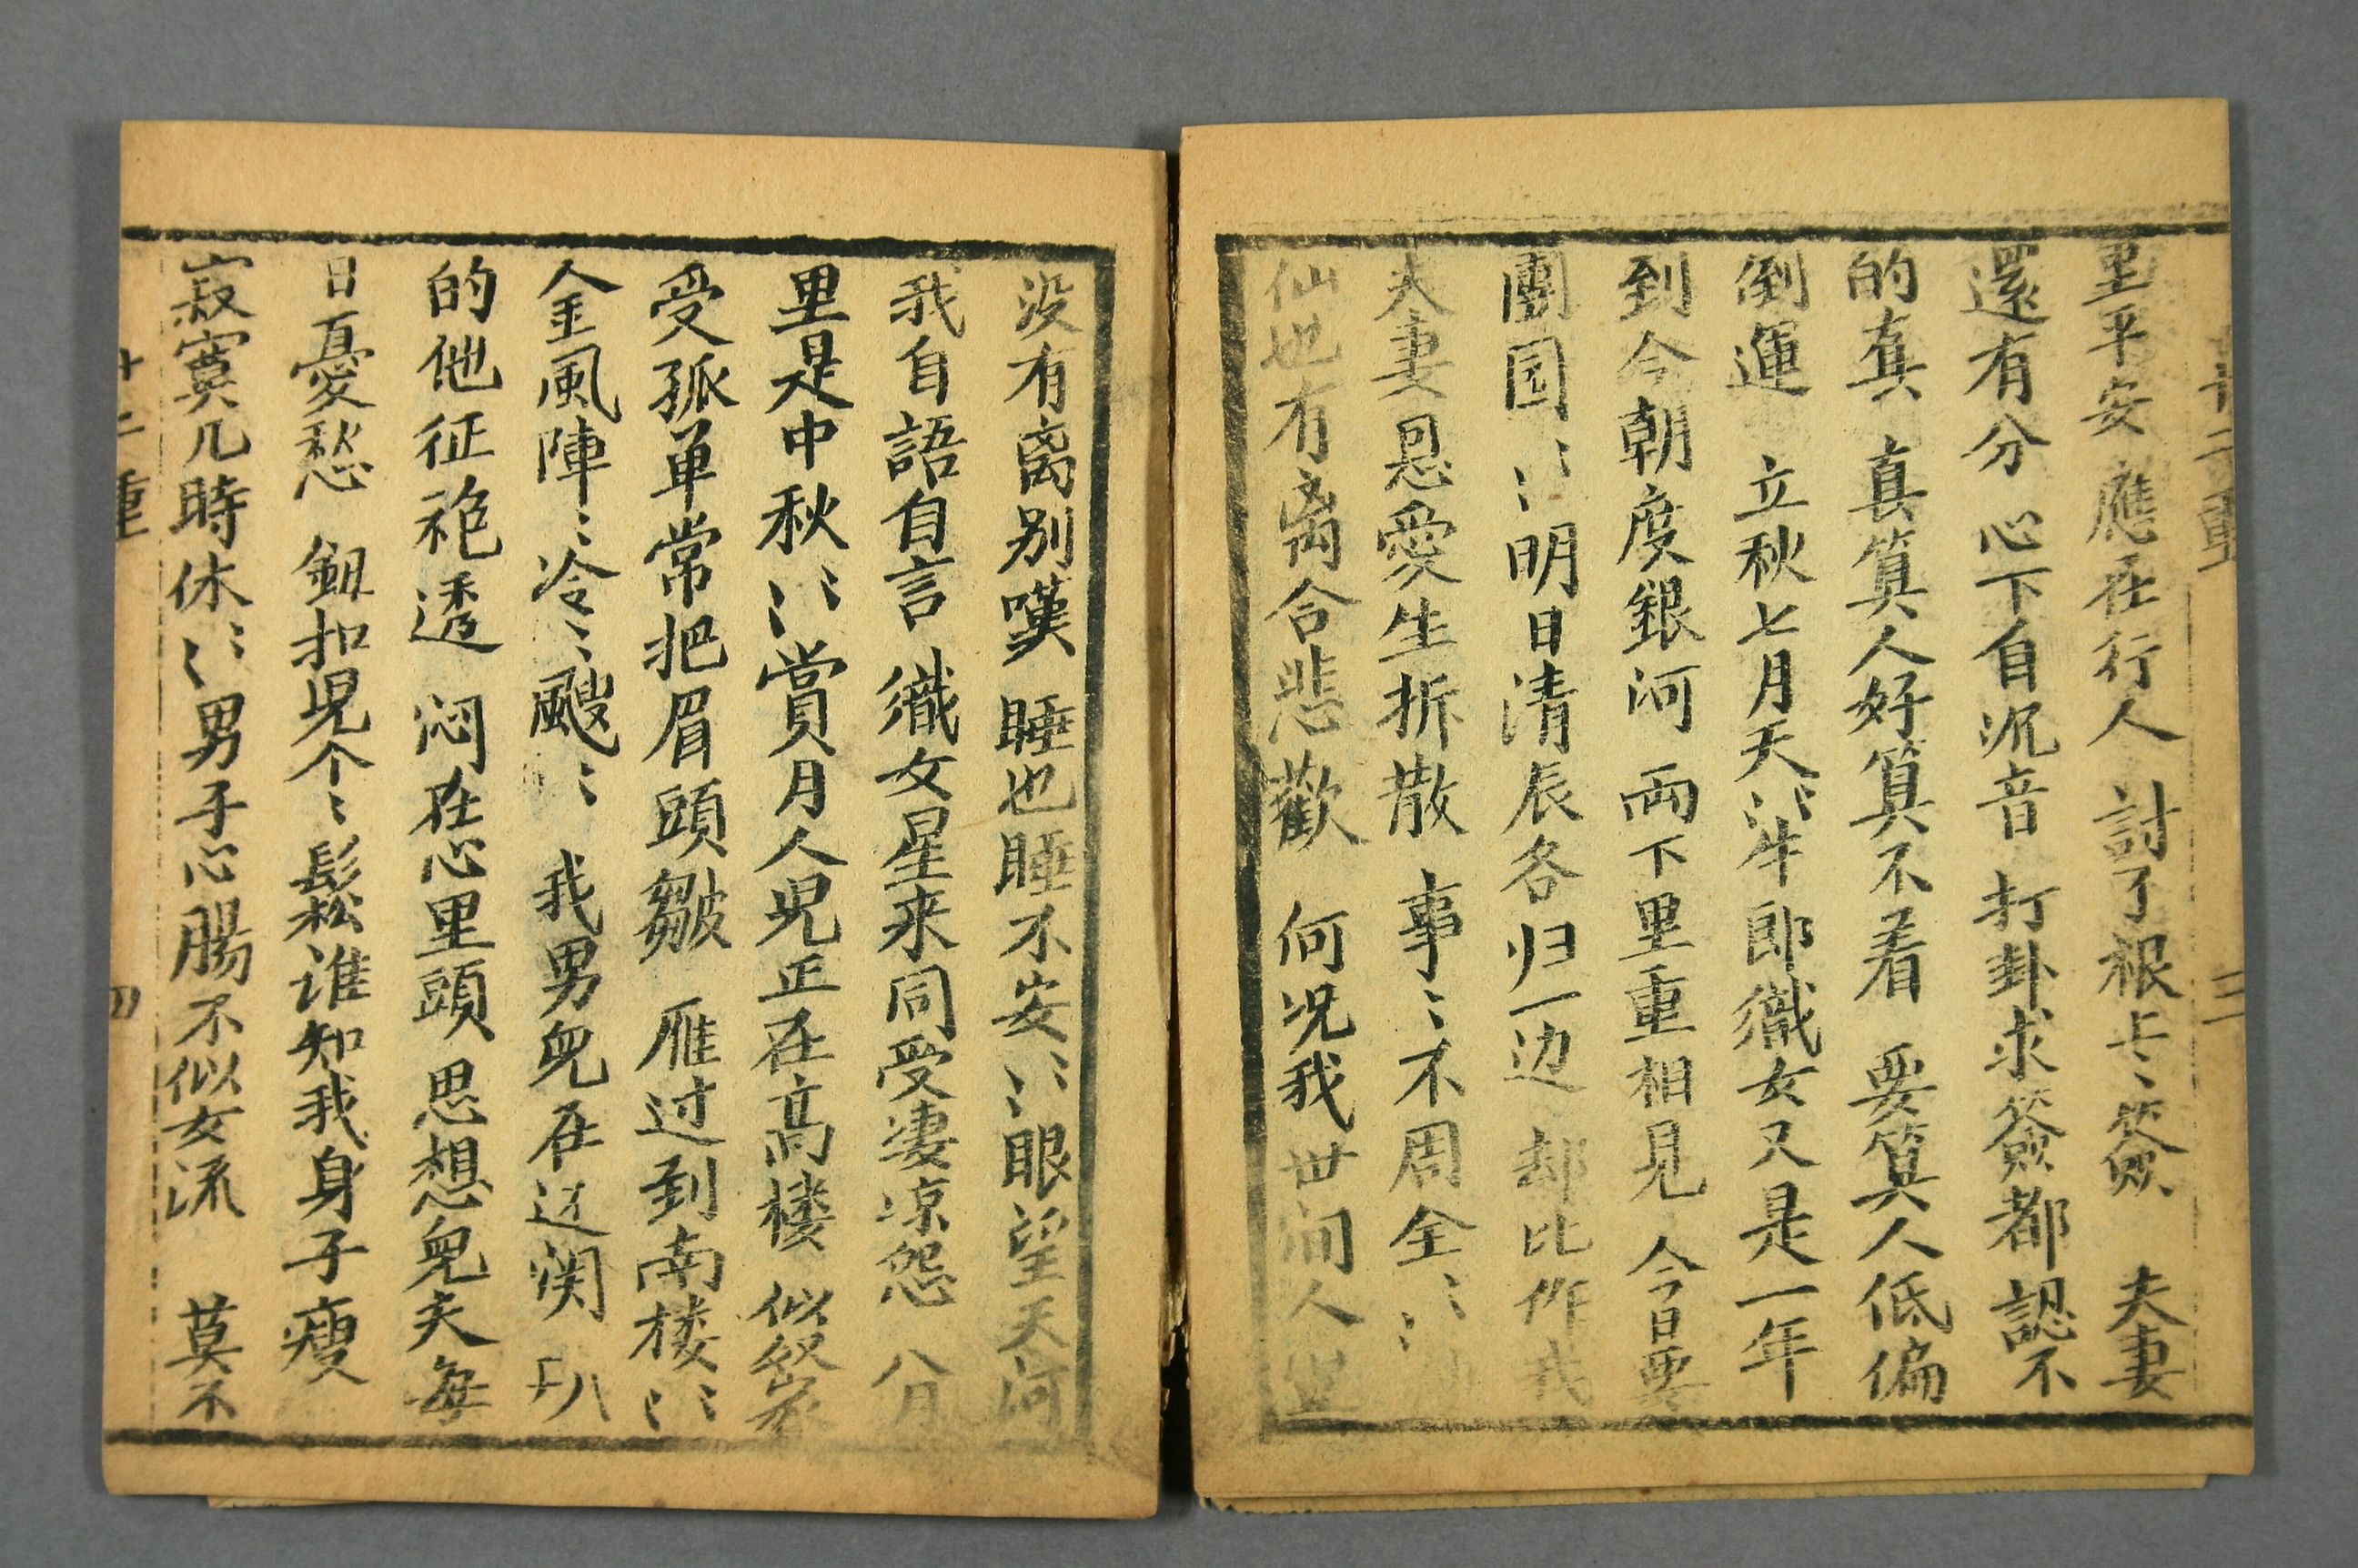 里平安應在行人討了根上〻簽夫妻
還有分心下自沉音打卦求簽都認不
的真真算人好算不着要算人低偏
倒運立秋七月天〻〻牛郎織女又是一年
到今朝度銀河両下里重相見今日要
團园〻〻明日清辰各归一边却比作我
夫妻恩愛生拆散事〻不周全〻〻
仙也有离合悲歡何况我世间人
没有离别嘆睡也睡不安〻〻眼望天河
我自語自言織女星来同受凄凉怨八月
里是中秋〻〻賞月人児正在高楼似奴家
受孤单常把眉頭皺雁过到南楼〻〻
金風陣〻冷〻颼〻我男兒在边関
的他征袍透闷在心里頭思想兒夫每
日憂愁鈕扣児个〻鬆谁知我身子瘦
寂寞几時休〻〻男子心腸不似女流莫不
十二重